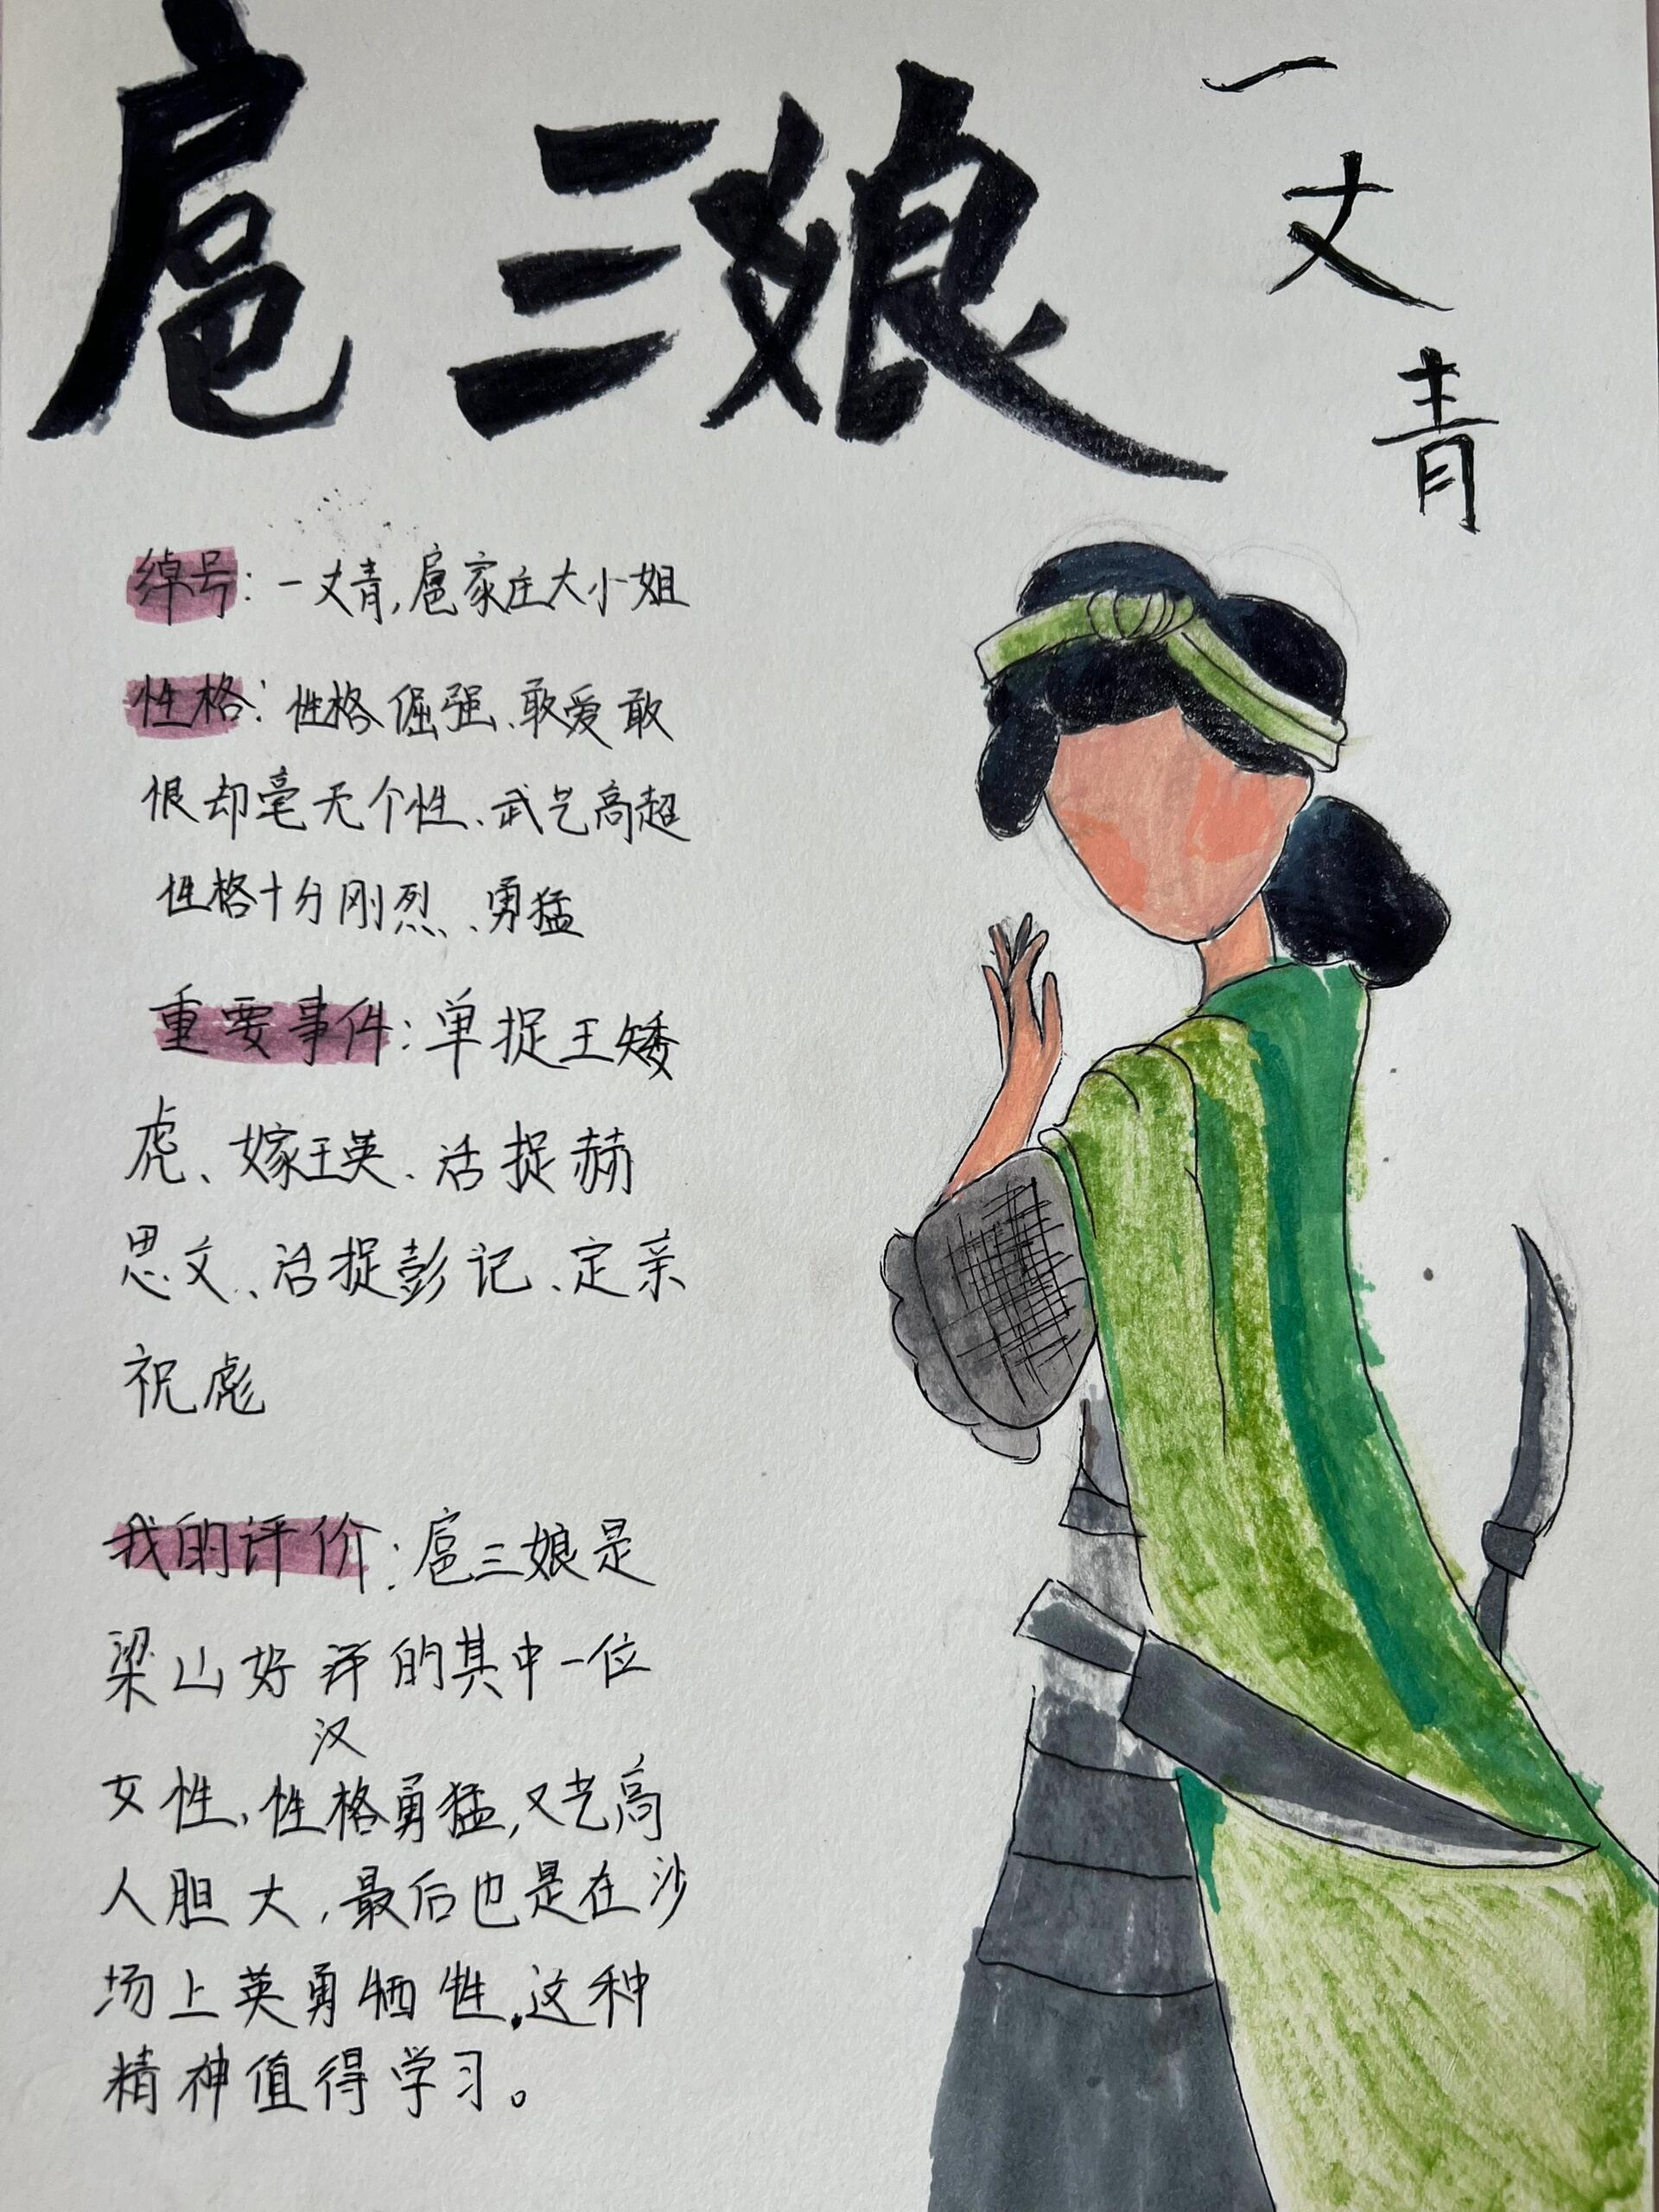 扈三娘
一丈青
绰号:一丈青,扈家庄大小姐
性格:性格倔强、敢爱敢
恨却毫无个性、武艺高超
性格十分刚烈、勇猛
重要事件:单捉王矮
虎、嫁王英、活捉赫
思文、活捉彭记、定亲
祝彪
我的评价:扈三娘是
梁山好评的其中一位
汉
女性,性格勇猛,又艺高
人胆大,最后也是在沙
场上英勇牺牲,这种
精神值得学习。